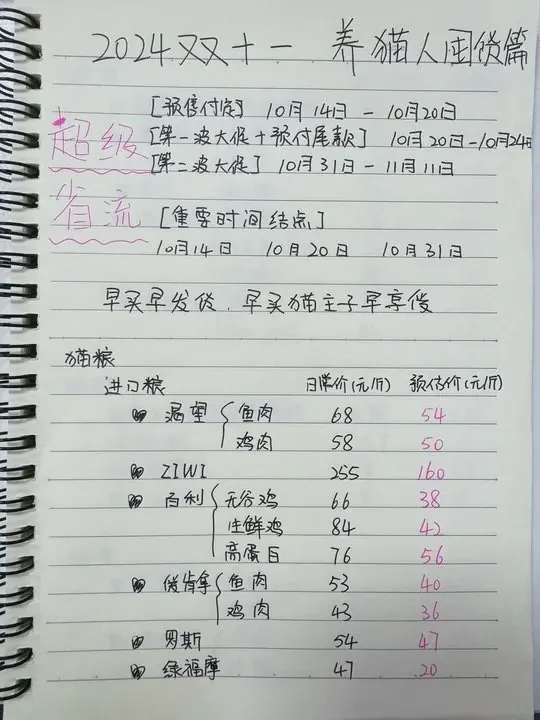 2024双十一 养猫人囤货篇
[预售付定] 10月14日-10月20日
超级 [第一波大促+预付尾款] 10月20日-10月24日
[第二波大促] 10月31日-11月11日
省流 [重要时间结点]
10月14日 10月20日 10月31日
早买早发货.早买猫主子早享受
猫粮
进口粮 日常价(元/斤) 预估价(元/斤)
渴望 { 鱼肉 68 54
鸡肉 58 50
ZIWI 255 160
百利 { 无谷鸡 66 38
生鲜鸡 84 42
高蛋白 76 56
爱肯拿 { 鱼肉 53 40
鸡肉 43 36
罗斯 54 47
绿福摩 47 20